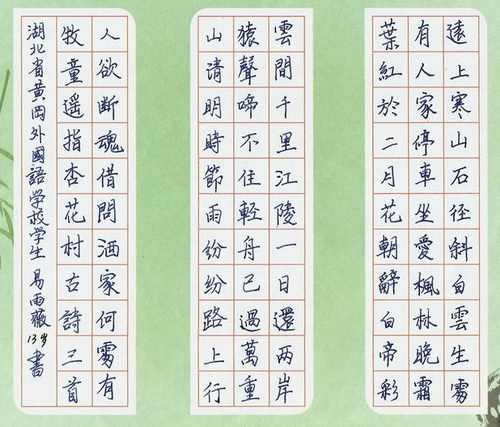 遠上寒山石径斜白雲生處
有人家停車坐愛楓林晚霜
葉紅於二月花朝辭白帝彩
雲間千里江陵一日還两岸
猿聲啼不住輕舟已過萬重
山清明時節雨紛紛路上行
人欲断魂借問酒家何處有
牧童遥指杏花村古詩三首
湖北省黄岡外國語学校学生 易雨薇 13岁 書